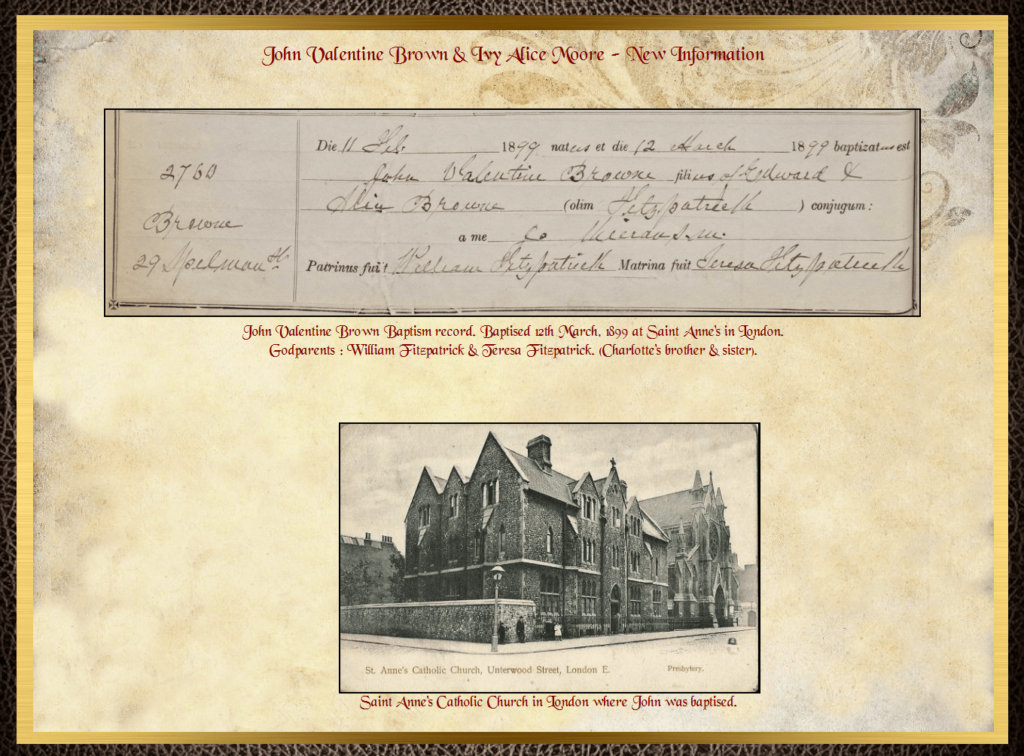 John Valentine Brown & Ivy Alice Moore - New Information
Die 11 Feb. 1899 natus et die 12 March 1899 baptizatus est
2760
John Valentine Browne filius of Edward &
Alice Browne (olim Fitzpatrick ) conjugum:
Browne
a me
29 Spelman St
Patrinus fuit William Fitzpatrick Matrina fuit Teresa Fitzpatrick
John Valentine Brown Baptism record. Baptised 12th March, 1899 at Saint Anne's in London.
Godparents : William Fitzpatrick & Teresa Fitzpatrick. (Charlotte's brother & sister).
St. Anne's Catholic Church, Unterwood Street, London E. Presbytery.
Saint Anne's Catholic Church in London where John was baptised.